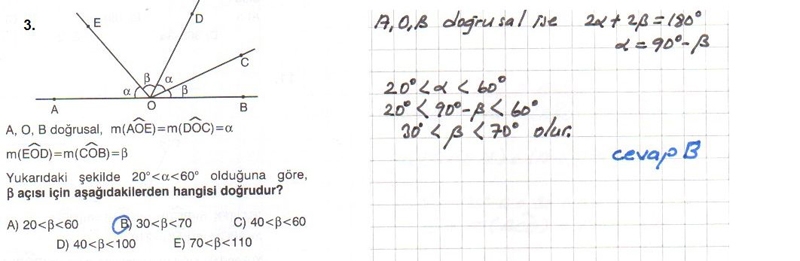 3.
E
D
C
β
α
α
β
A
O
B
A, O, B doğrusal, m(AÔE)=m(DÔC)=α
m(EÔD)=m(CÔB)=β
Yukarıdaki şekilde 20°<α<60° olduğuna göre,
β açısı için aşağıdakilerden hangisi doğrudur?
A) 20<β<60 B) 30<β<70 C) 40<β<60
D) 40<β<100 E) 70<β<110
A, O, B doğrusal ise 2α + 2β = 180°
α = 90° - β
20° < α < 60°
20° < 90° - β < 60°
30° < β < 70° olur.
cevap B